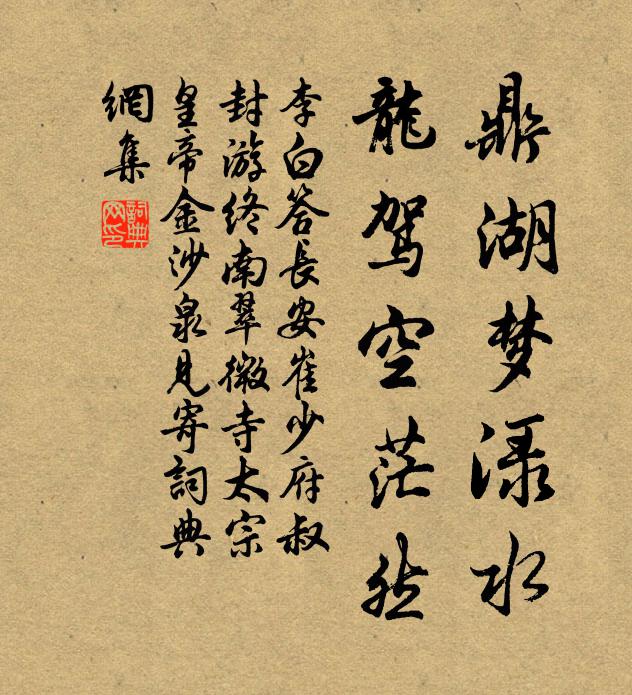 鼎湖梦渌水
龍駕空茫然
李白答長安崔少府叔
封游終南翠微寺太宗
皇帝金沙泉見寄詞典
網集
詞典
网印